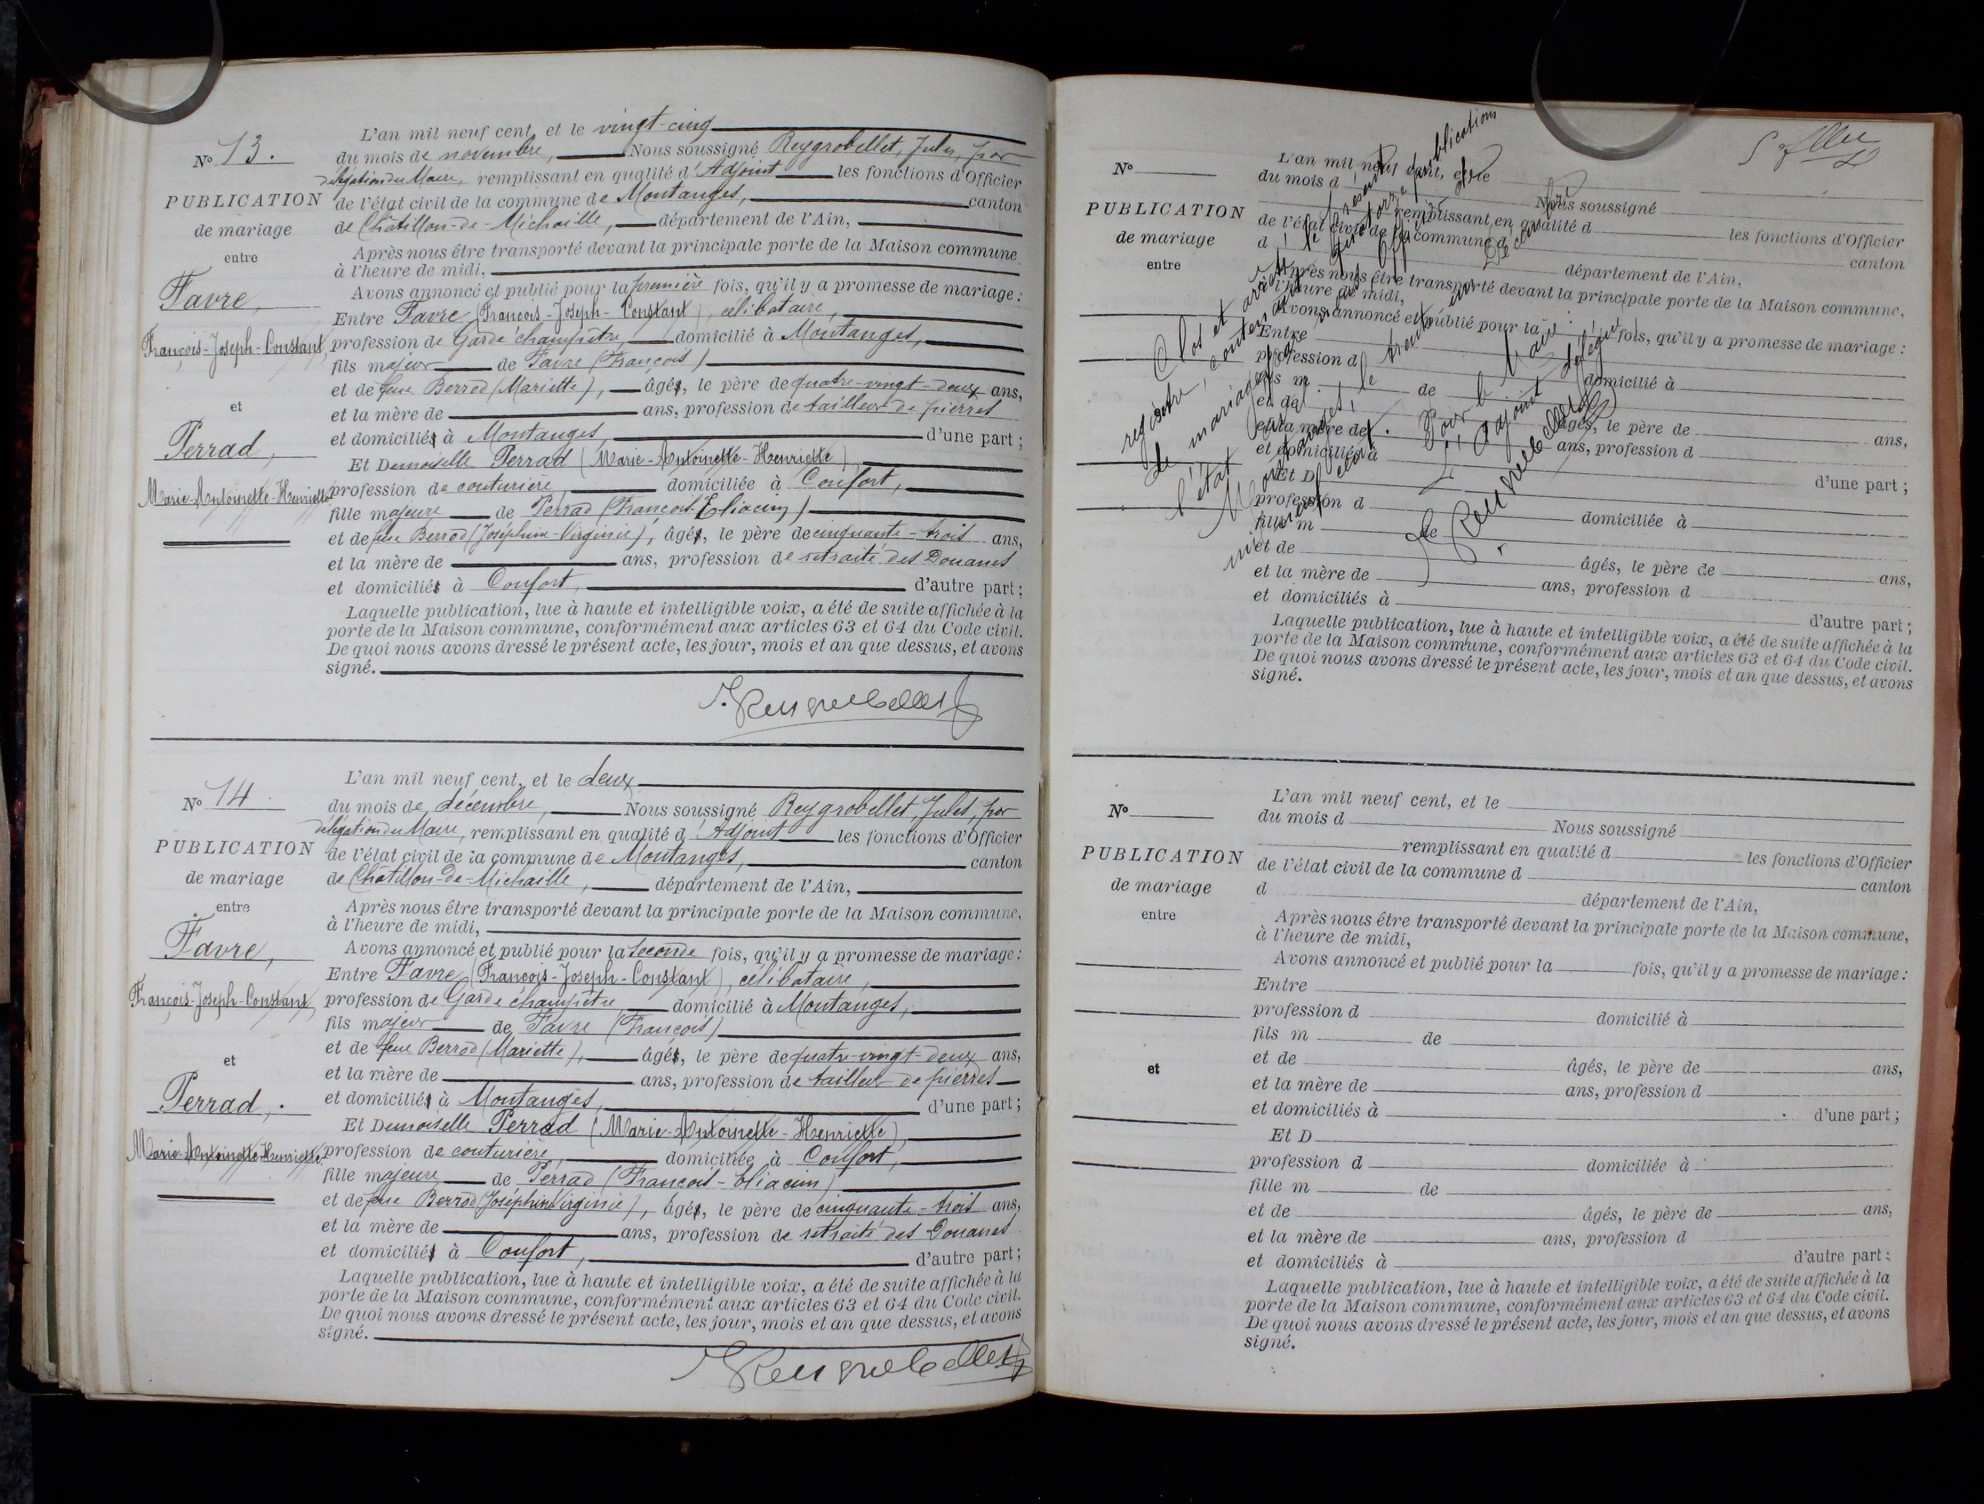 No 13.
PUBLICATION
de mariage
entre
Favre,
François-Joseph-Constant,
et
Perrad,
Marie-Antoinette-Henriette
L'an mil neuf cent, et le vingt-cinq
du mois de novembre, Nous soussigné Reygrobellet, Jules, par
délégation du Maire, remplissant en qualité d'Adjoint les fonctions d'Officier
de l'état civil de la commune de Montanges, canton
de Châtillon-de-Michaille, département de l'Ain,
Après nous être transporté devant la principale porte de la Maison commune
à l'heure de midi,
Avons annoncé et publié pour la première fois, qu'il y a promesse de mariage :
Entre Favre (François-Joseph-Constant), célibataire,
profession de Garde champêtre, domicilié à Montanges,
fils majeur de Favre (François)
et de feue Berrod (Mariette), âgés, le père de quatre-vingt-deux ans,
et la mère de ans, profession de tailleur de pierres
et domiciliés à Montanges, d'une part ;
Et Demoiselle Perrad (Marie-Antoinette-Henriette),
profession de couturière, domiciliée à Confort,
fille majeure de Perrad (François-Eliacim)
et de feue Berrod (Joséphine-Virginie), âgés, le père de cinquante-trois ans,
et la mère de ans, profession de retraité des Douanes
et domiciliés à Confort, d'autre part ;
Laquelle publication, lue à haute et intelligible voix, a été de suite affichée à la
porte de la Maison commune, conformément aux articles 63 et 64 du Code civil.
De quoi nous avons dressé le présent acte, les jour, mois et an que dessus, et avons
signé.
J. Reygrobellet
No 14.
PUBLICATION
de mariage
entre
Favre,
François-Joseph-Constant,
et
Perrad,
Marie-Antoinette-Henriette
L'an mil neuf cent, et le deux
du mois de décembre, Nous soussigné Reygrobellet, Jules, par
délégation du Maire, remplissant en qualité d'Adjoint les fonctions d'Officier
de l'état civil de la commune de Montanges, canton
de Châtillon-de-Michaille, département de l'Ain,
Après nous être transporté devant la principale porte de la Maison commune,
à l'heure de midi,
Avons annoncé et publié pour la seconde fois, qu'il y a promesse de mariage :
Entre Favre (François-Joseph-Constant), célibataire,
profession de Garde champêtre domicilié à Montanges,
fils majeur de Favre (François)
et de feue Berrod (Mariette), âgés, le père de quatre-vingt-deux ans,
et la mère de ans, profession de tailleur de pierres
et domiciliés à Montanges, d'une part ;
Et Demoiselle Perrad (Marie-Antoinette-Henriette),
profession de couturière, domiciliée à Confort,
fille majeure de Perrad (François-Eliacim)
et de feue Berrod (Joséphine-Virginie), âgés, le père de cinquante-trois ans,
et la mère de ans, profession de retraité des Douanes
et domiciliés à Confort, d'autre part ;
Laquelle publication, lue à haute et intelligible voix, a été de suite affichée à la
porte de la Maison commune, conformément aux articles 63 et 64 du Code civil.
De quoi nous avons dressé le présent acte, les jour, mois et an que dessus, et avons
signé.
J. Reygrobellet
No
PUBLICATION
de mariage
entre
L'an mil neuf cent, et le
du mois d Nous soussigné
remplissant en qualité d les fonctions d'Officier
de l'état civil de la commune d canton
d département de l'Ain,
Après nous être transporté devant la principale porte de la Maison commune,
à l'heure de midi,
Avons annoncé et publié pour la fois, qu'il y a promesse de mariage :
Entre
profession d domicilié à
fils m de
et de âgés, le père de ans,
et la mère de ans, profession d
et domiciliés à d'une part ;
Et D
profession d domiciliée à
fille m de
et de âgés, le père de ans,
et la mère de ans, profession d
et domiciliés à d'autre part ;
Laquelle publication, lue à haute et intelligible voix, a été de suite affichée à la
porte de la Maison commune, conformément aux articles 63 et 64 du Code civil.
De quoi nous avons dressé le présent acte, les jour, mois et an que dessus, et avons
signé.
Clos et arrêté le présent
registre, contenant quatorze publications
de mariage, par
l'état civil
Montanges, le trente et un
mil neuf cent.
Pour le Maire :
L'Adjoint délégué
J. Reygrobellet
No
PUBLICATION
de mariage
entre
et
L'an mil neuf cent, et le
du mois d Nous soussigné
remplissant en qualité d les fonctions d'Officier
de l'état civil de la commune d canton
d département de l'Ain,
Après nous être transporté devant la principale porte de la Maison commune,
à l'heure de midi,
Avons annoncé et publié pour la fois, qu'il y a promesse de mariage :
Entre
profession d domicilié à
fils m de
et de âgés, le père de ans,
et la mère de ans, profession d
et domiciliés à d'une part ;
Et D
profession d domiciliée à
fille m de
et de âgés, le père de ans,
et la mère de ans, profession d
et domiciliés à d'autre part ;
Laquelle publication, lue à haute et intelligible voix, a été de suite affichée à la
porte de la Maison commune, conformément aux articles 63 et 64 du Code civil.
De quoi nous avons dressé le présent acte, les jour, mois et an que dessus, et avons
signé.